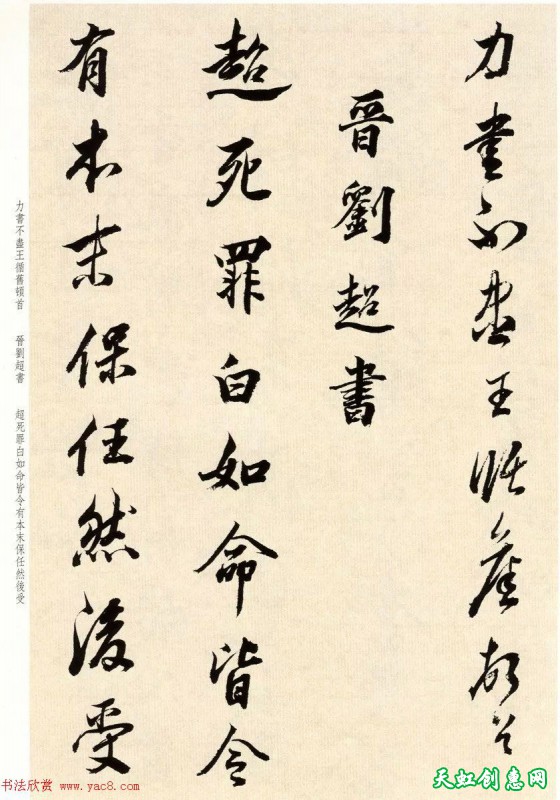 力書不盡王循舊頓首
晉劉超書
超死罪白如命皆令
有本末保任然後受
力書不盡王循舊頓首 晉劉超書 超死罪白如命皆令有本末保任然後受
书法欣赏 www.yac8.com
天虹创意网